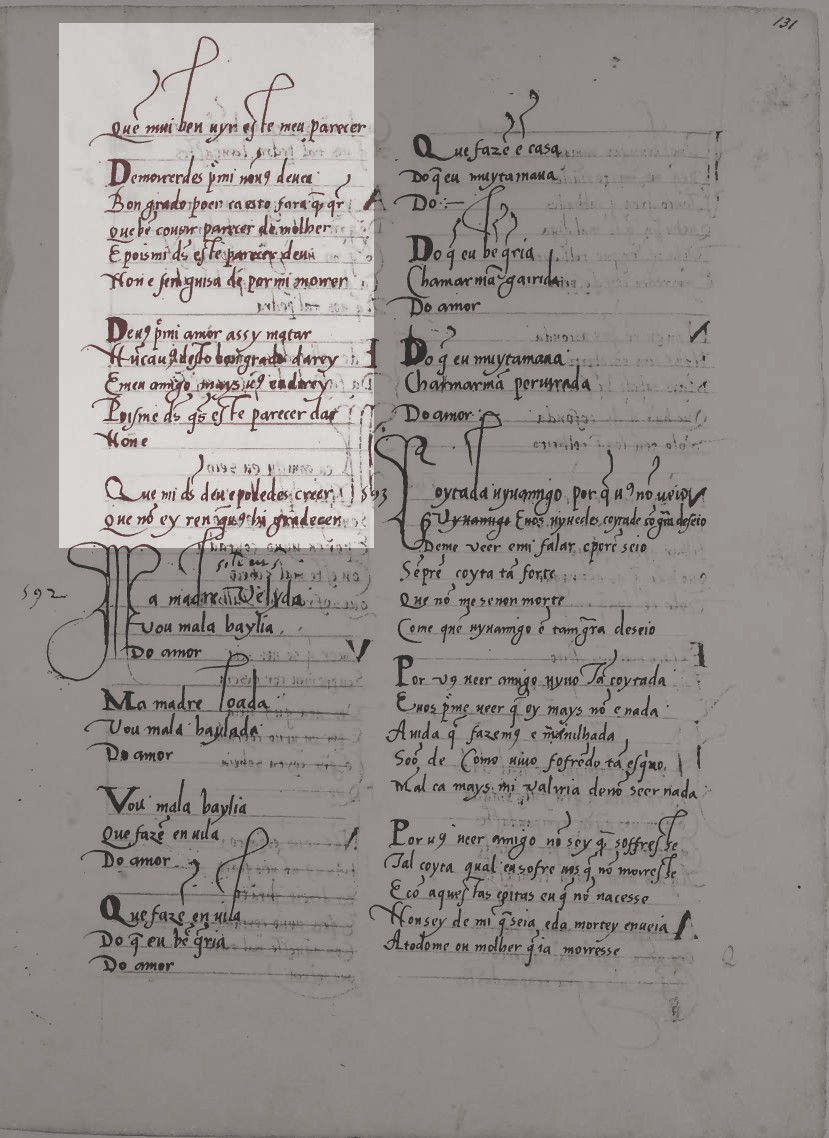 131
Que mui ben vyn este meu parecer
Demorrerdes p̃mi nouꝯ deuea
Bon grado poer ca esto fara q̃ qr̃
Que bẽ cousir parecer de molher
E poismi ds̃ este parecer deu
Non e sen guisa de por mi moirer
Deuꝯ p̃mi amor assy matar
Nũcauꝯ desto bon grado darey
E meu amigo mays uꝯ en direy
Poisme ds̃ q̃s este parecer dar
Non e
Que mi ds̃ deu e podedes creer
que nõ ey ren q̃ uꝯ hi gradecer
592
Ma madre velyda
Vou mala baylia
Do amor
Ma madre loada
Vou mala baylada
Do amor
Vou mala baylia
Que fazẽ en uila
Do amor
Que fazẽ en uila
Do q̃ eu bẽ q̃ria
Do amor
Que fazẽ e casa
Do q̃ eu muytamaua
Do
Do q̃ eu be q̃ria
Chamar mã garrida
Do amor
Do q̃ eu muytamaua
Charmarmã periurada
Do amor
593
Coytada uyuamigo por q̃ uꝯ nõ ueio
E uos uyuedes coytade cõ grã deseio
Deme veer emi falar, e porẽ seio
Sẽprẽ coyta tã forte
Que nõ me senon morte
Come que uyuamigo e tam grã deseio
Por uꝯ ueer amigo uyuo Tã coytada
E uos p̃me ueer q̃ oy mays nõ e nada
A uida q̃ fazemꝯ e marauilhada
Soõ de Como uiuo sofrẽdo tã esq̃uo
Mal ca mays mi valrria denõ seer nada
Por uꝯ ueer amigo nõ sey q̃ soffresse
Tal coyta qual eu sofre uos q̃ nõ moiresse
E cõ aquestas coitas eu q̃ nõ nacesse
Non sey de mi q̃ seia, eda mortey enueia
A todome ou molher q̃ ia moiresse